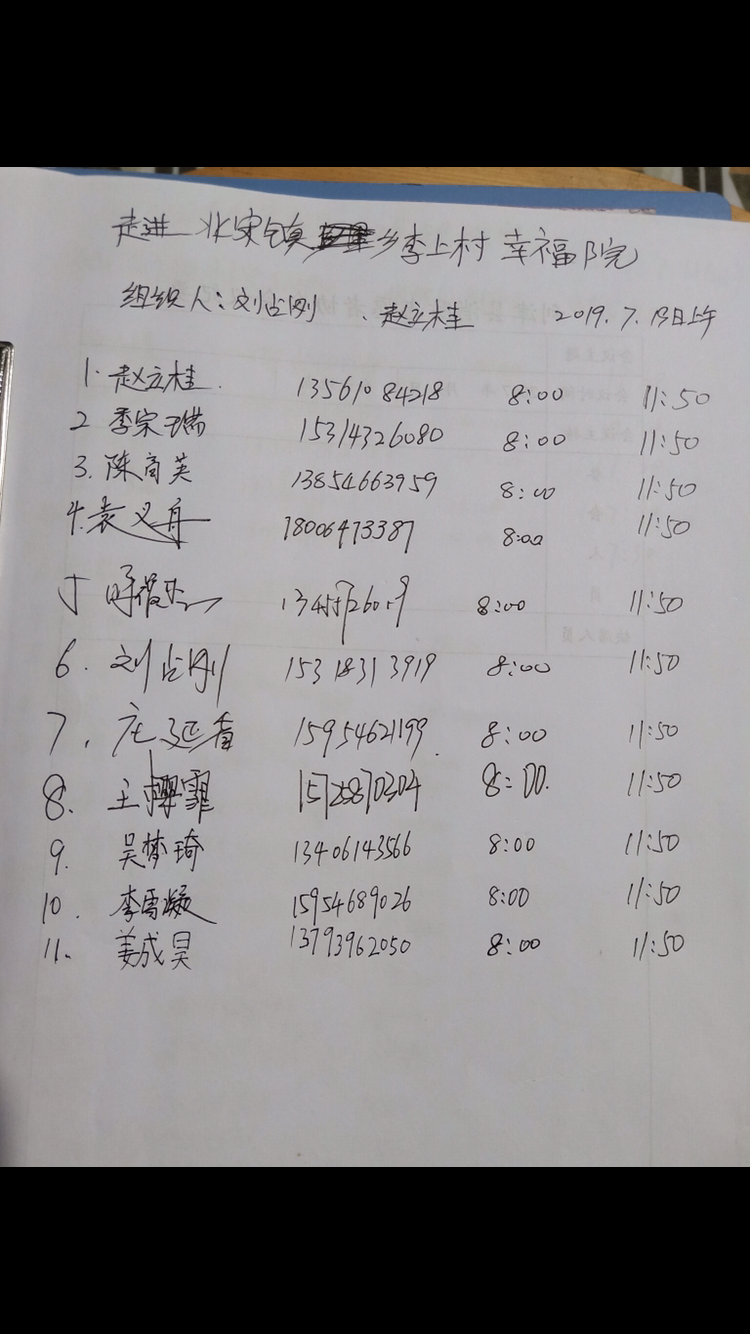 走进北宋镇 乡李上村 幸福院
组织人:刘占刚 、赵立桂 2019.7.13日上午
1. 赵立桂. 13561084218 8:00 11:50
2 季宗瑞 15314326080 8:00 11:50
3. 陈商英 13854663959 8:00 11:50
4. 袁义舟 18006473387 8:00 11:50
5 8:00 11:50
6. 刘占刚 15318313919 8:00 11:50
7. 庄延香 15954621199. 8:00 11:50
8. 王 霏 15725870304 8:00. 11:50
9. 吴梦琦 13406143566 8:00 11:50
10. 李雪凝 15954689026 8:00 11:50
11. 姜成昊 13793962050 8:00 11:50